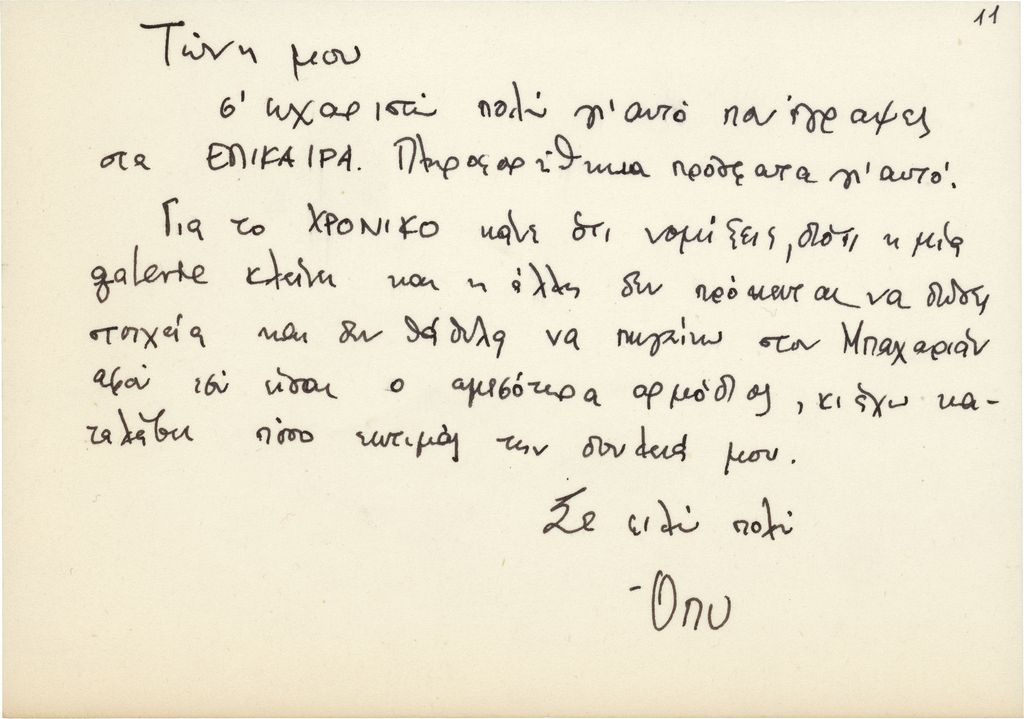 11
Τώνη μου
σ' ευχαριστώ πολύ γι' αυτό που έγραψες
στα ΕΠΙΚΑΙΡΑ. Πληροφορήθηκα πρόσφατα γι' αυτό.
Για το ΧΡΟΝΙΚΟ κάνε ότι νομίζεις, διότι η μία
galerie κλείνει και η άλλη δεν πρόκειται να δώσει
στοιχεία και δεν θάθελα να πηγαίνω στον Μπαχαριάν
αφού εσύ είσαι ο αμεσότερα αρμόδιος, κι έχω κα-
ταλάβει πόσο εκτιμάς την δουλειά μου.
Σε φιλώ πολύ
Όπυ